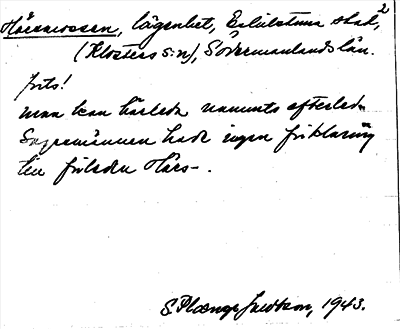 Hårsmossen, lägenhet, Eskilstuna stad, 2
(Klosters s:n), Södermanlands län.
Jvts!
man kan härleda namnets efterled.
Sagesmännen hade ingen förklaring
till förleden Hårs-.
S. Plænge Jacobson, 1943.